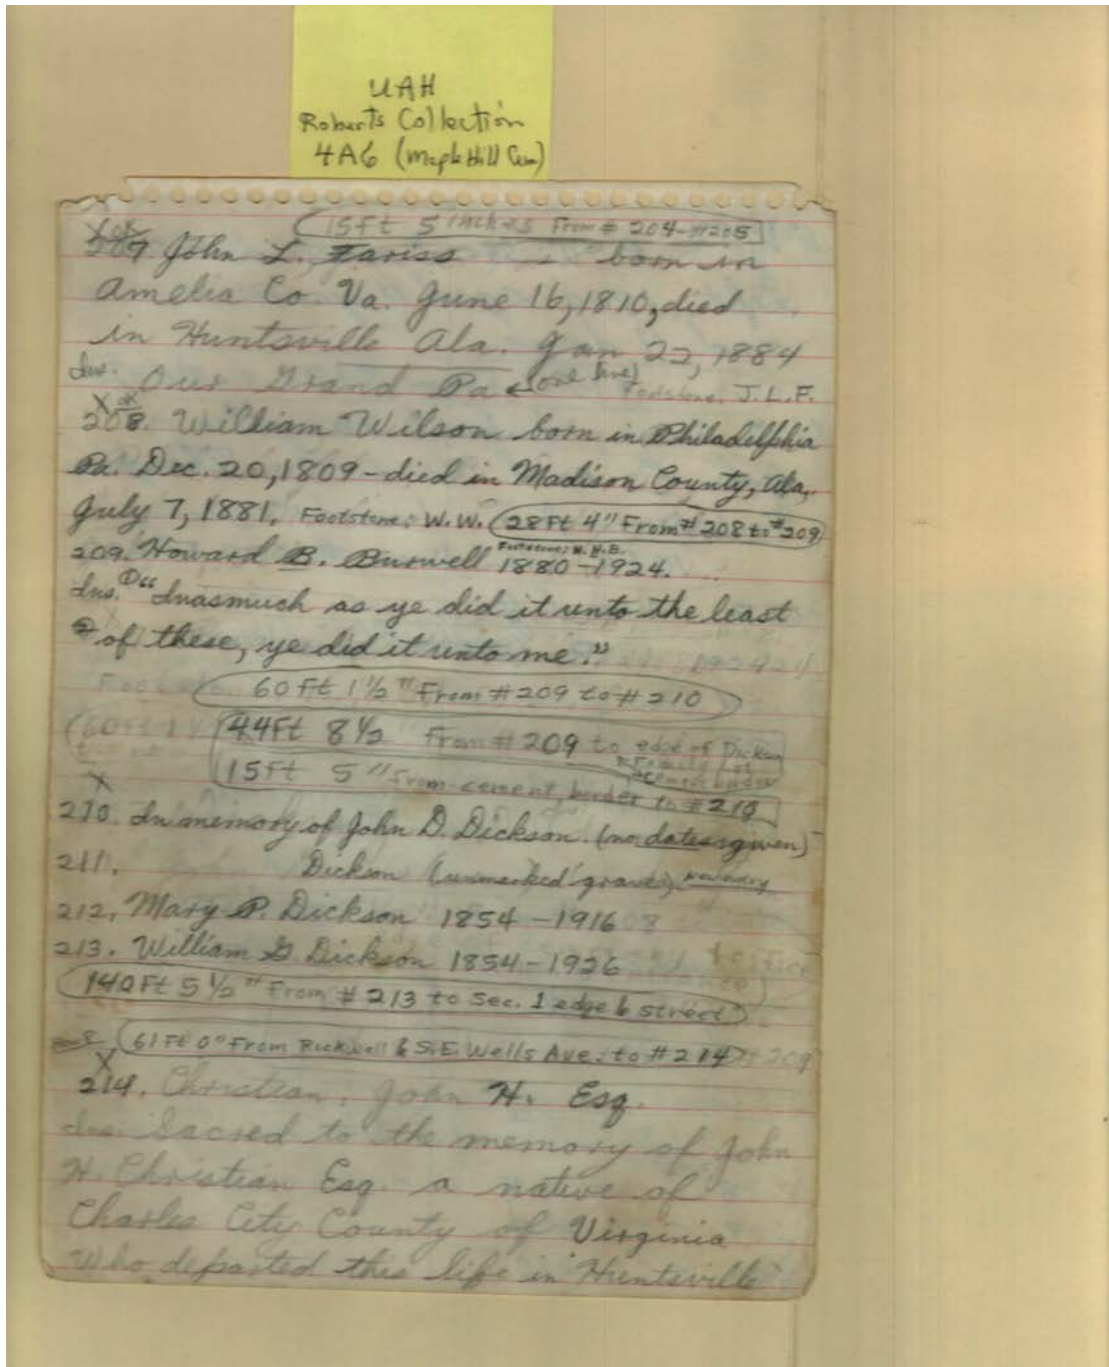 UAH
Roberts Collection
4A6 (Maple Hill Cem)
15Ft 5 inches From # 204-#205
207 John L. Fariss born in
Amelia Co. Va. June 16, 1810, died
in Huntsville Ala. Jan 22, 1884
Ins. Our Grand Pa (one line) Footstone, J.L.F.
208. William Wilson born in Philadelphia
Pa. Dec. 20, 1809 - died in Madison County, Ala,
July 7, 1881, Footstone; W.W. 28Ft 4" From #208 to #209
209. Howard B. Burwell Footstone; H.B.B. 1880-1924.
Ins. "Inasmuch as ye did it unto the least
of these, ye did it unto me."
60 Ft 1 1/2" From #209 to #210
44Ft 8 1/2 From #209 to edge of Dickson
Family Lot
cement border
15Ft 5" From cement border to #210
210. In memory of John D. Dickson. (no dates given)
211. Dickson (unmarked graves)
212, Mary P. Dickson 1854-1916
213. William G. Dickson 1854-1926
140Ft 5 1/2" From # 213 to Sec. 1 edge & street
61 Ft 0" From Rockwell & S.E. Wells Ave. to #214
214. Christian, John H. Esq.
Ins. Sacred to the memory of John
H. Christian Esq. a native of
Charles City County of Virginia
Who departed this life in Huntsville